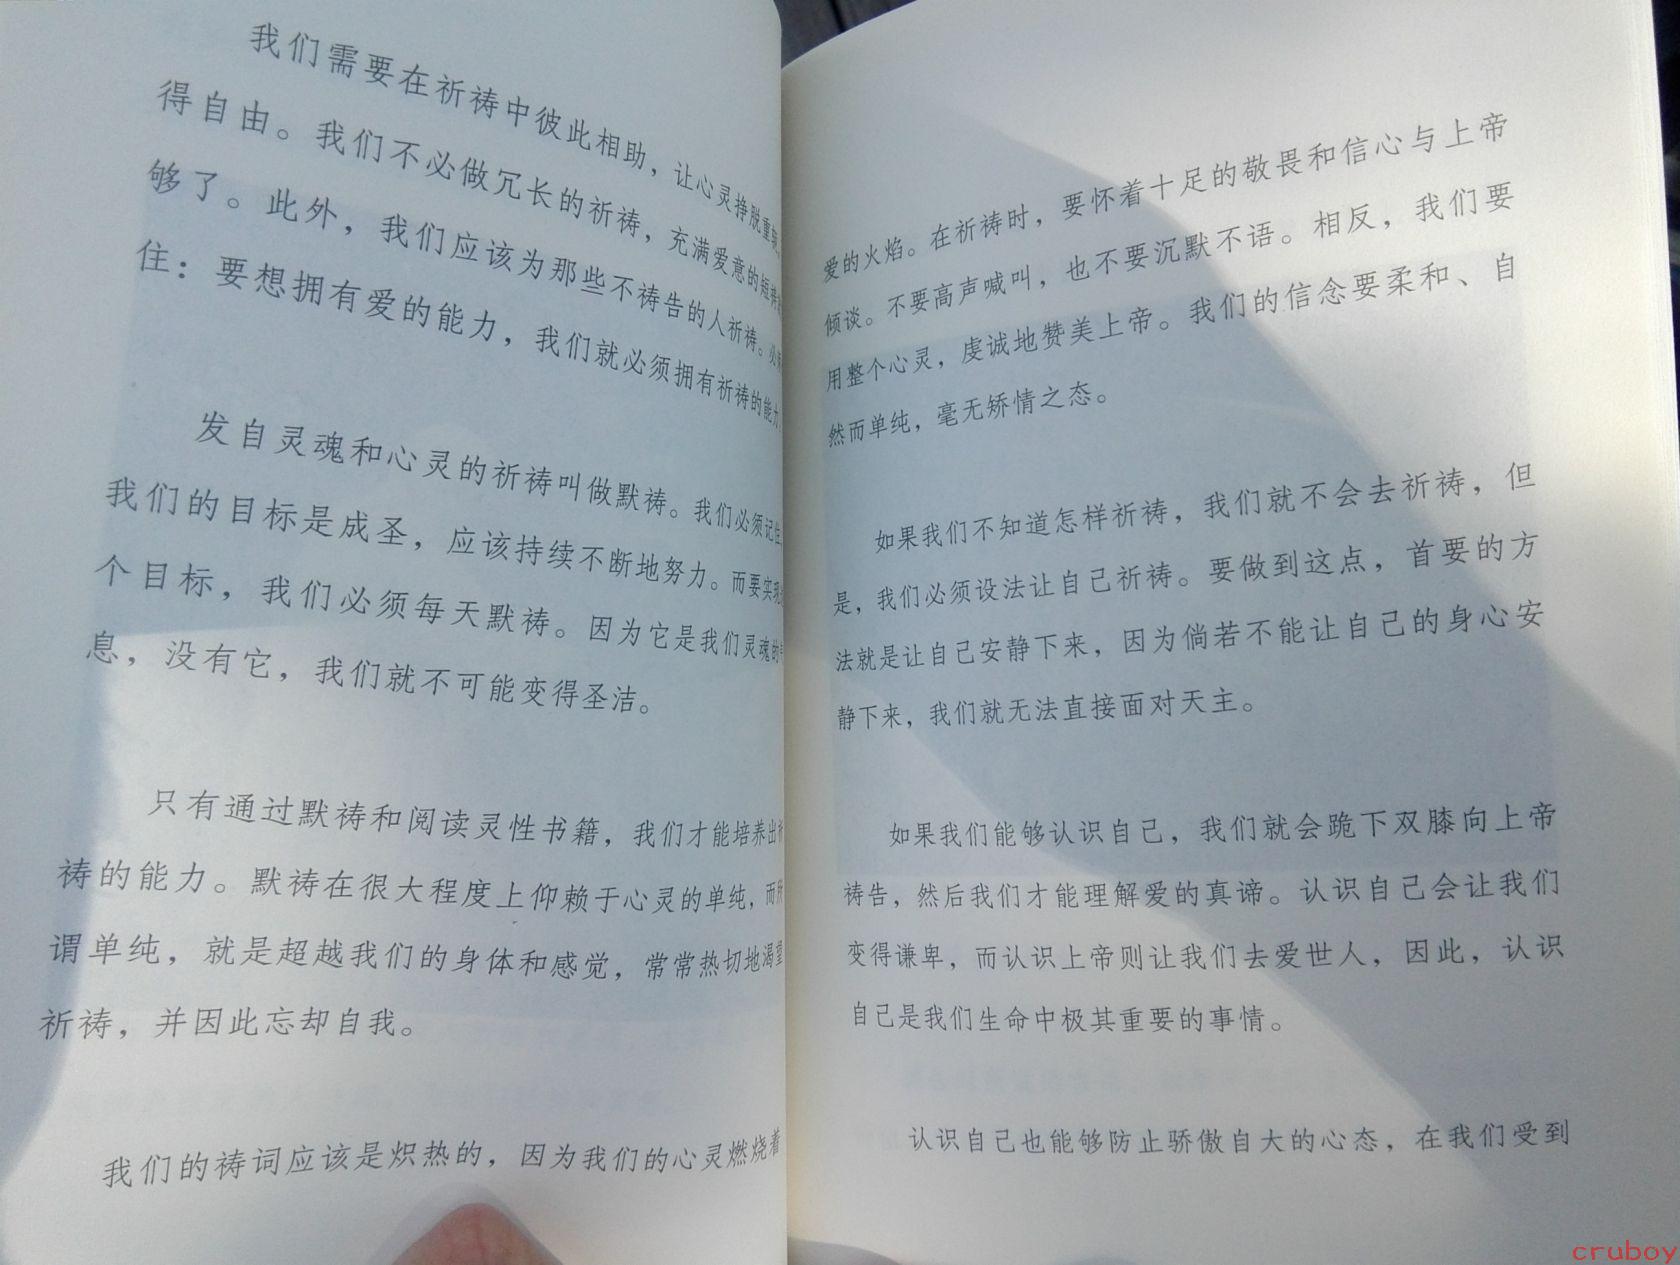 我们需要在祈祷中彼此相助，让心灵挣脱重
得自由。我们不必做冗长的祈祷，充满爱意的短祷
够了。此外，我们应该为那些不祷告的人祈祷。必
住：要想拥有爱的能力，我们就必须拥有祈祷的能力
发自灵魂和心灵的祈祷叫做默祷。我们必须记住
我们的目标是成圣，应该持续不断地努力。而要实现
个目标，我们必须每天默祷。因为它是我们灵魂的
息，没有它，我们就不可能变得圣洁。
只有通过默祷和阅读灵性书籍，我们才能培养出
祷的能力。默祷在很大程度上仰赖于心灵的单纯，而所
谓单纯，就是超越我们的身体和感觉，常常热切地渴望
祈祷，并因此忘却自我。
我们的祷词应该是炽热的，因为我们的心灵燃烧着
爱的火焰。在祈祷时，要怀着十足的敬畏和信心与上帝
倾谈。不要高声喊叫，也不要沉默不语。相反，我们要
用整个心灵，虔诚地赞美上帝。我们的信念要柔和、自
然而单纯，毫无矫情之态。
如果我们不知道怎样祈祷，我们就不会去祈祷，但
是，我们必须设法让自己祈祷。要做到这点，首要的方
法就是让自己安静下来，因为倘若不能让自己的身心安
静下来，我们就无法直接面对天主。
如果我们能够认识自己，我们就会跪下双膝向上帝
祷告，然后我们才能理解爱的真谛。认识自己会让我们
变得谦卑，而认识上帝则让我们去爱世人，因此，认识
自己是我们生命中极其重要的事情。
认识自己也能够防止骄傲自大的心态，在我们受到
cruboy